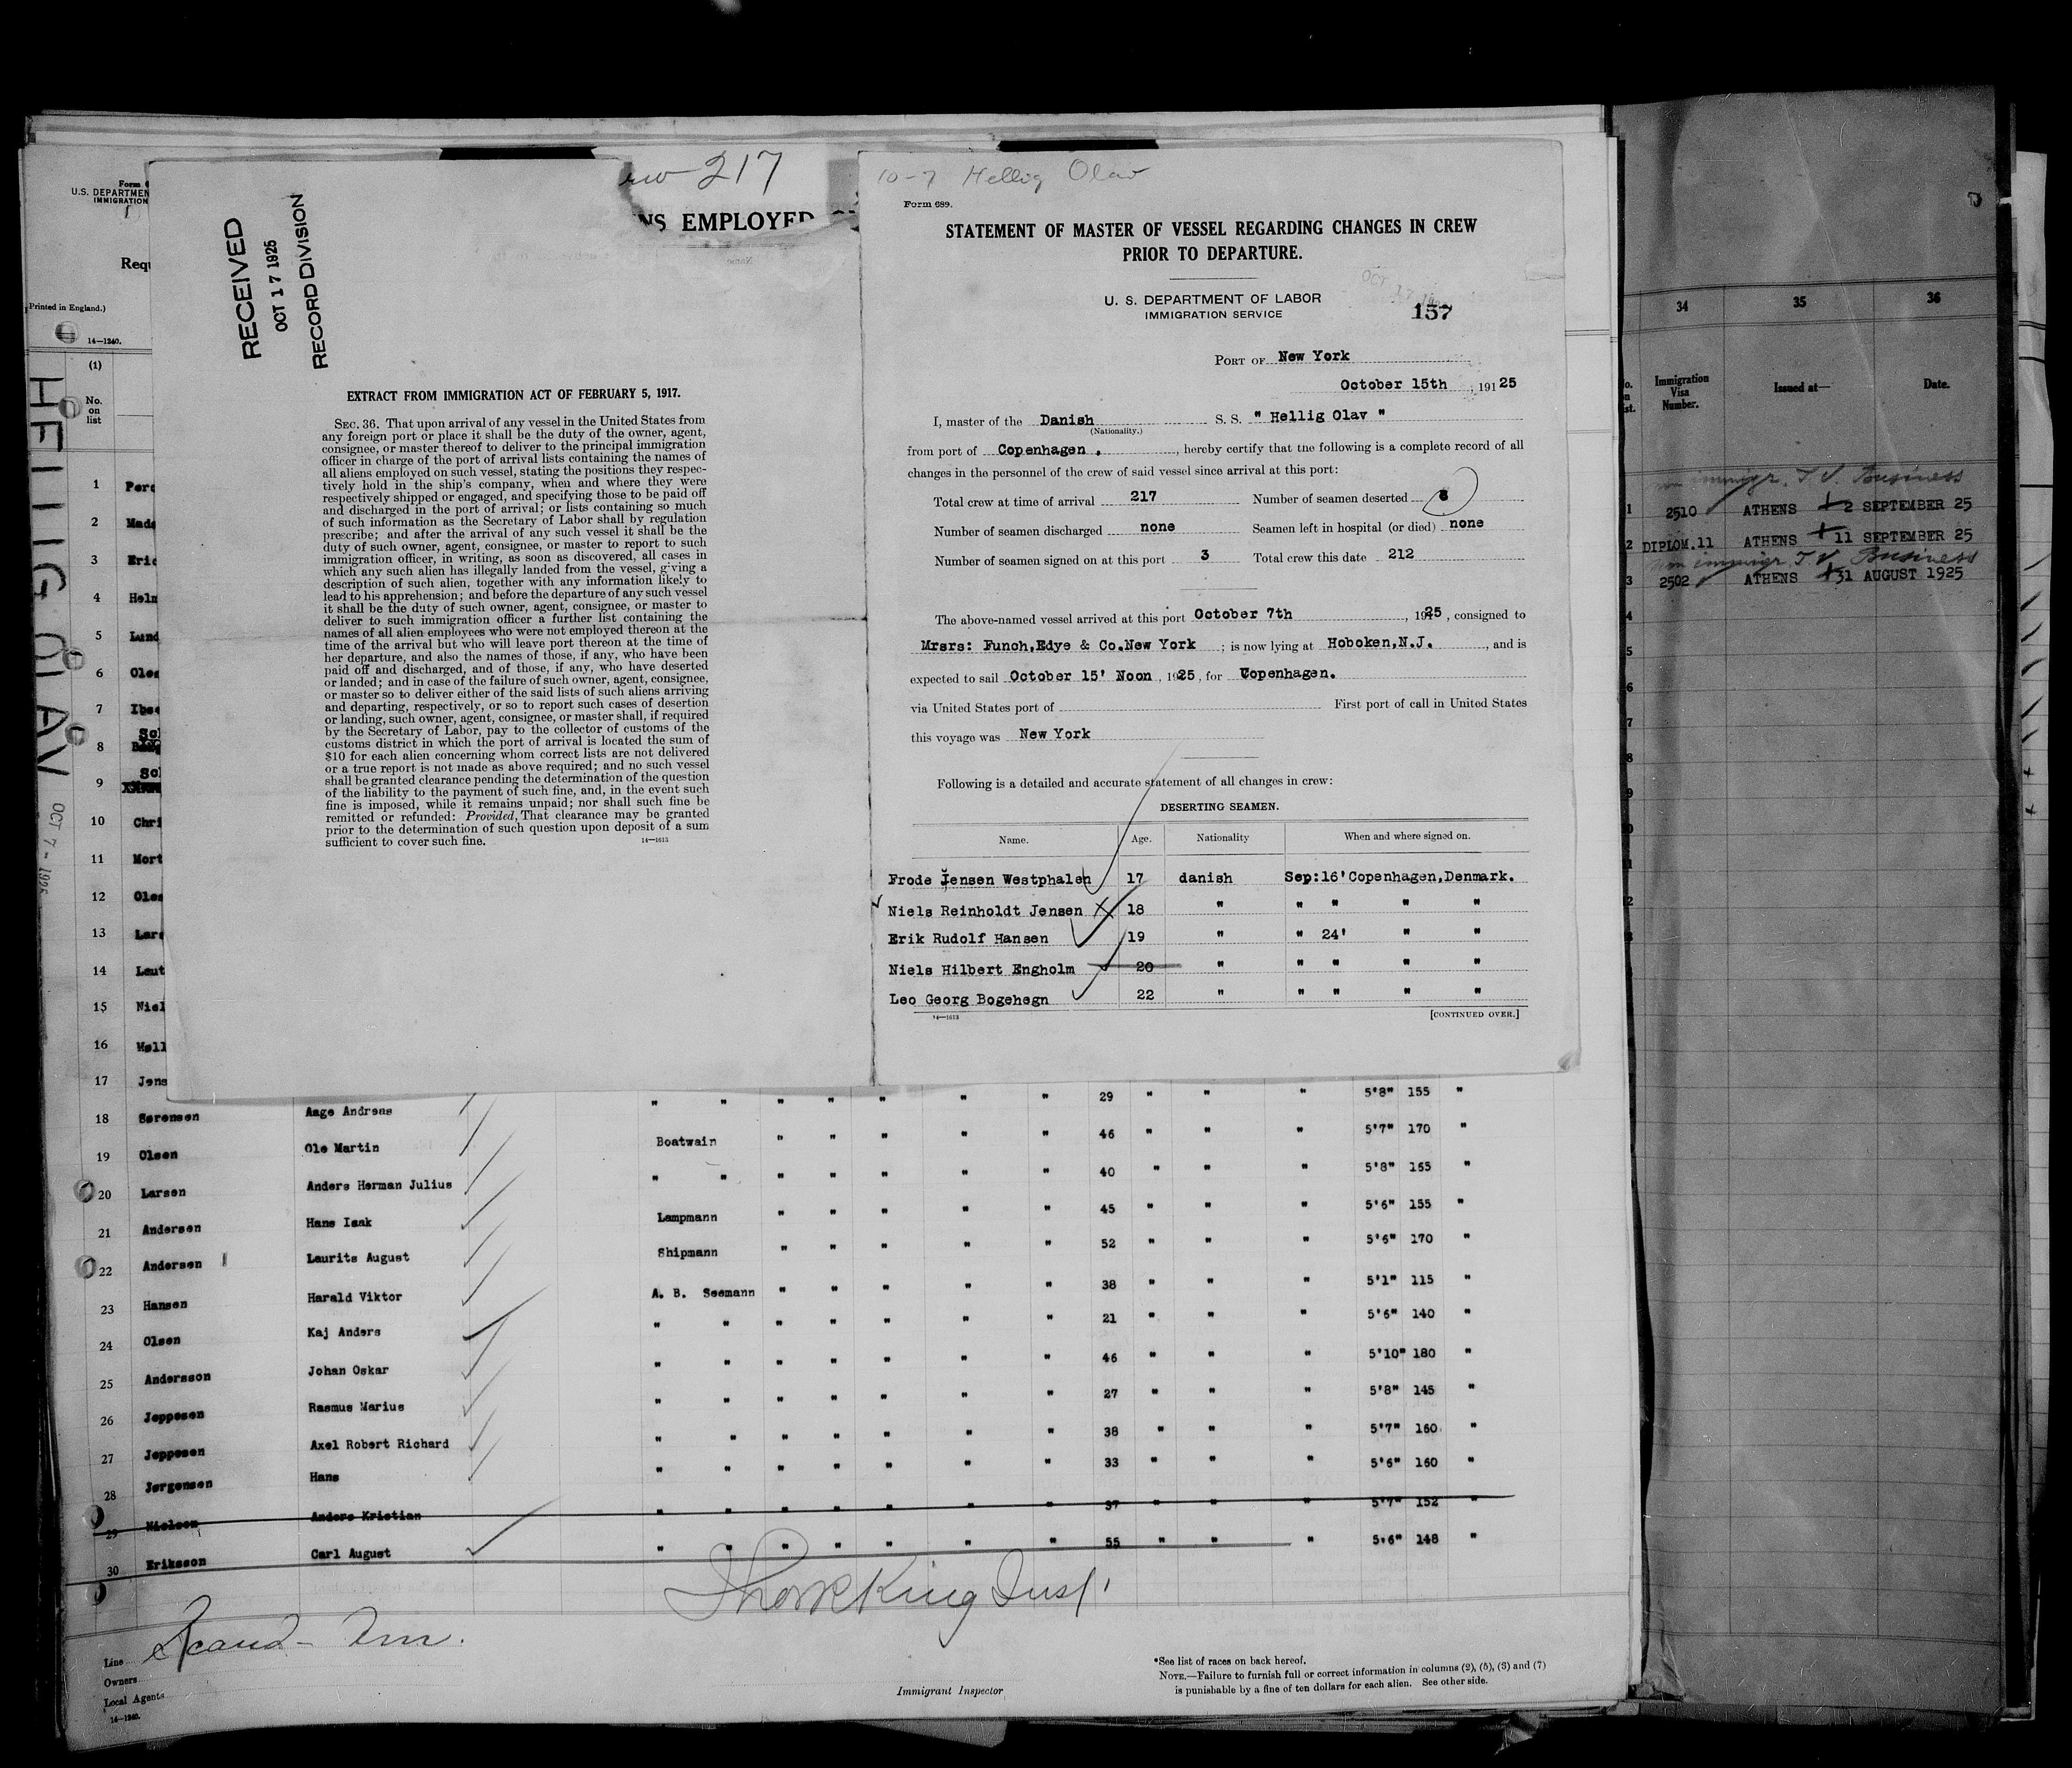 Form
U.S. DEPARTMEN
IMMIGRATION
Requ
Printed in England.)
14—1240.
(1)
No.
on
list
HELLIG OLAV
OCT 7 - 1925
1 Pers
2 Mads
3 Eric
4 Helm
5 Lund
6 Oles
7 Ibse
8
9
10 Chri
11 Mort
12 Oles
13 Lars
14 Laut
15 Niel
16 Møll
17 Jens
RECEIVED
OCT 17 1925
RECORD DIVISION
217
NS EMPLOYED
EXTRACT FROM IMMIGRATION ACT OF FEBRUARY 5, 1917.
SEC. 36. That upon arrival of any vessel in the United States from
any foreign port or place it shall be the duty of the owner, agent,
consignee, or master thereof to deliver to the principal immigration
officer in charge of the port of arrival lists containing the names of
all aliens employed on such vessel, stating the positions they respec-
tively hold in the ship's company, when and where they were
respectively shipped or engaged, and specifying those to be paid off
and discharged in the port of arrival; or lists containing so much
of such information as the Secretary of Labor shall by regulation
prescribe; and after the arrival of any such vessel it shall be the
duty of such owner, agent, consignee, or master to report to such
immigration officer, in writing, as soon as discovered, all cases in
which any such alien has illegally landed from the vessel, giving a
description of such alien, together with any information likely to
lead to his apprehension; and before the departure of any such vessel
it shall be the duty of such owner, agent, consignee, or master to
deliver to such immigration officer a further list containing the
names of all alien employees who were not employed thereon at the
time of the arrival but who will leave port thereon at the time of
her departure, and also the names of those, if any, who have been
paid off and discharged, and of those, if any, who have deserted
or landed; and in case of the failure of such owner, agent, consignee,
or master so to deliver either of the said lists of such aliens arriving
and departing, respectively, or so to report such cases of desertion
or landing, such owner, agent, consignee, or master shall, if required
by the Secretary of Labor, pay to the collector of customs of the
customs district in which the port of arrival is located the sum of
$10 for each alien concerning whom correct lists are not delivered
or a true report is not made as above required; and no such vessel
shall be granted clearance pending the determination of the question
of the liability to the payment of such fine, and, in the event such
fine is imposed, while it remains unpaid; nor shall such fine be
remitted or refunded: Provided, That clearance may be granted
prior to the determination of such question upon deposit of a sum
sufficient to cover such fine.
14—1613
10-7 Hellig Olav
Form 689.
STATEMENT OF MASTER OF VESSEL REGARDING CHANGES IN CREW
PRIOR TO DEPARTURE.
OCT 17
U. S. DEPARTMENT OF LABOR
IMMIGRATION SERVICE
157
PORT OF New York
October 15th , 191 25
I, master of the Danish S. S. " Hellig Olav "
(Nationality.)
from port of Copenhagen . , hereby certify that the following is a complete record of all
changes in the personnel of the crew of said vessel since arrival at this port:
Total crew at time of arrival 217 Number of seamen deserted 8
Number of seamen discharged none Seamen left in hospital (or died) none
Number of seamen signed on at this port 3 Total crew this date 212
The above-named vessel arrived at this port October 7th , 1925 , consigned to
Mrsrs: Funch,Edye & Co.New York ; is now lying at Hoboken,N.J. , and is
expected to sail October 15' Noon , 1925 , for Copenhagen.
via United States port of First port of call in United States
this voyage was New York
Following is a detailed and accurate statement of all changes in crew:
DESERTING SEAMEN.
Name. Age. Nationality When and where signed on.
Frode Jensen Westphalen 17 danish Sep:16'Copenhagen,Denmark.
Niels Reinholdt Jensen 18 " " " " "
Erik Rudolf Hansen 19 " " 24' " "
Niels Hilbert Engholm 20 " " " " "
Leo Georg Bogehegn 22 " " " " "
14—1613 [CONTINUED OVER.]
29 " " " 5'8" 155 "
18 Sørensen Aage Andreas " " " " " " " 46 " " " 5'7" 170 "
19 Olsen Ole Martin Boatwain " " " " " 40 " " " 5'8" 165 "
20 Larsen Anders Herman Julius " " " " " " " 45 " " " 5'6" 155 "
21 Andersen Hans Isak Lampmann " " " " " 52 " " " 5'6" 170 "
22 Andersen Laurits August Shipmann " " " " " 38 " " " 5'1" 115 "
23 Hansen Harald Viktor A. B. Seemann " " " " " 21 " " " 5'6" 140 "
24 Olsen Kaj Anders " " " " " " " 46 " " " 5'10" 180 "
25 Andersson Johan Oskar " " " " " " " 27 " " " 5'8" 145 "
26 Jeppesen Rasmus Marius " " " " " " " 38 " " " 5'7" 160 "
27 Jeppesen Axel Robert Richard " " " " " " " 33 " " " 5'6" 160 "
28 Jørgensen Hans " " " " " " " 37 " " " 5'7" 152 "
29 Nielsen Anders Kristian " " " " " " " 55 " " " 5'6" 148 "
30 Eriksson Carl August
Scand- Am.
Line
Owners
Local Agents
14—1240.
Immigrant Inspector
*See list of races on back hereof.
NOTE.—Failure to furnish full or correct information in columns (2), (5), (3) and (7)
is punishable by a fine of ten dollars for each alien. See other side.
34 35 36
Immigration
Visa
Number.
Issued at—
Date.
non immigr. T.V. Business
1 2510 ATHENS 2 SEPTEMBER 25
2 DIPLOM.11 ATHENS 11 SEPTEMBER 25
non immigr. T.V. Business
3 2502 ATHENS 31 AUGUST 1925
4
5
6
7
8
9
10
11
12
13